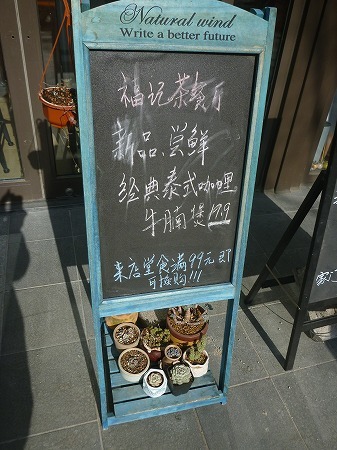 Natural wind
Write a better future
福记茶餐厅
新品、尝鲜
经典泰式咖喱
牛腩煲 17.9
来店堂食满99元即
可换购!!!